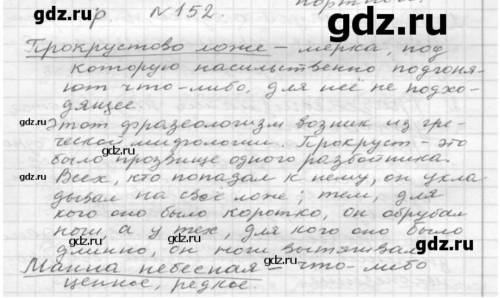 портной.
р №152.
ГДЗ.РУ
Прокрустово ложе – мерка, под
которую насильственно подгоня-
gdz.ru ют что-либо, для неё не подхо- gdz.ru
дящее.
gdz.ru
Этот фразеологизм возник из гре-
ческой мифологии. Прокруст – это
было прозвище одного разбойника.
gdz.ru gdz.ru
Всех, кто попадал к нему, он укла-
дывал на своё ложе; тем, для
кого оно было коротко, он обрубал
gdz.ru ноги, а у тех, для кого оно было gdz.ru
длинно, он ноги вытягивал.
gdz.ru
Манна небесная – что-либо
gdz.ru
ценное, редкое.